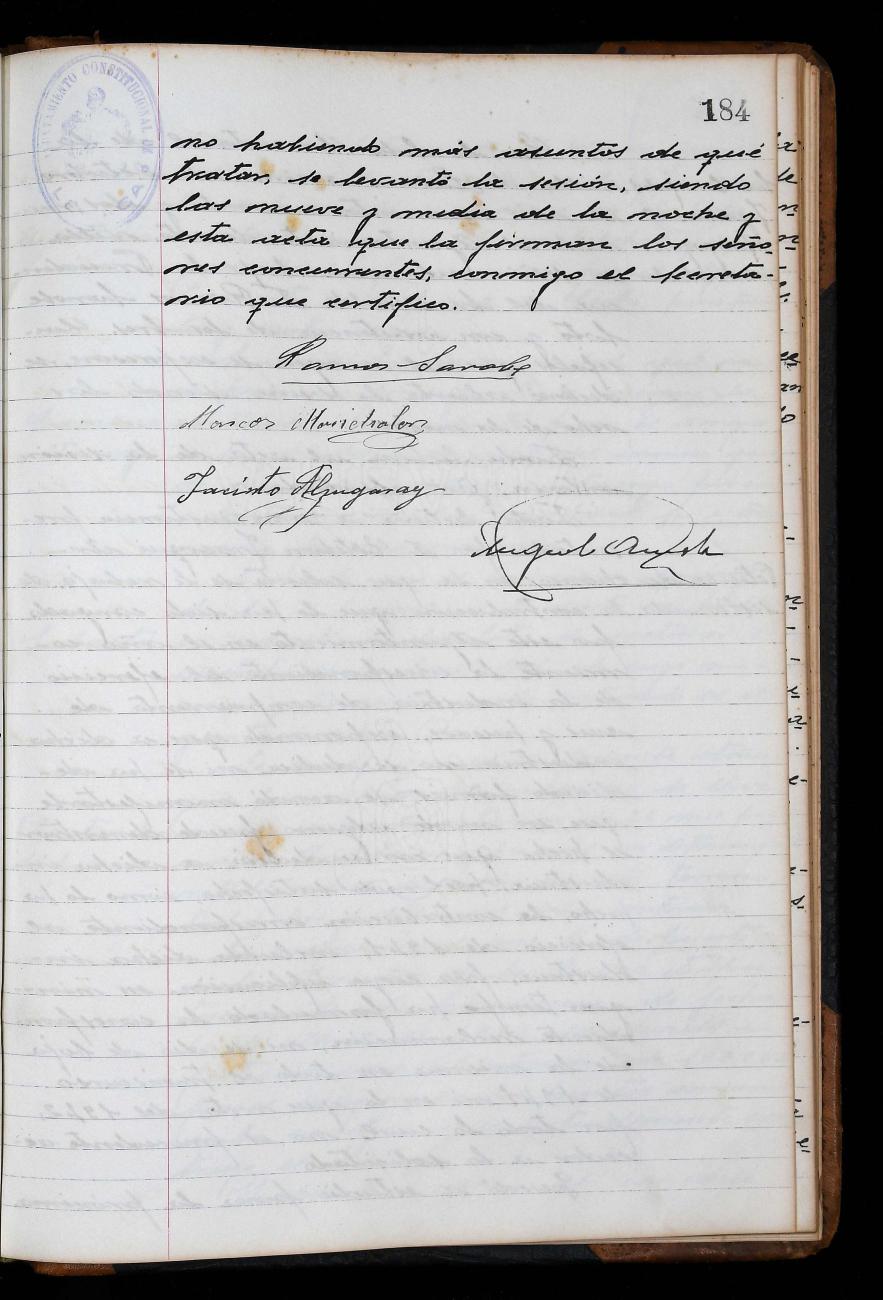 184
AYUNTAMIENTO CONSTITUCIONAL DE
no habiendo más asuntos de qué
tratar, se levantó la sesión, siendo
las nueve y media de la noche y
esta acta que la firman los seño-
res concurrentes, conmigo el Secreta-
rio que certifico.
Ramon Sarobe
Marcos
Jacinto Alzugaray
Miguel